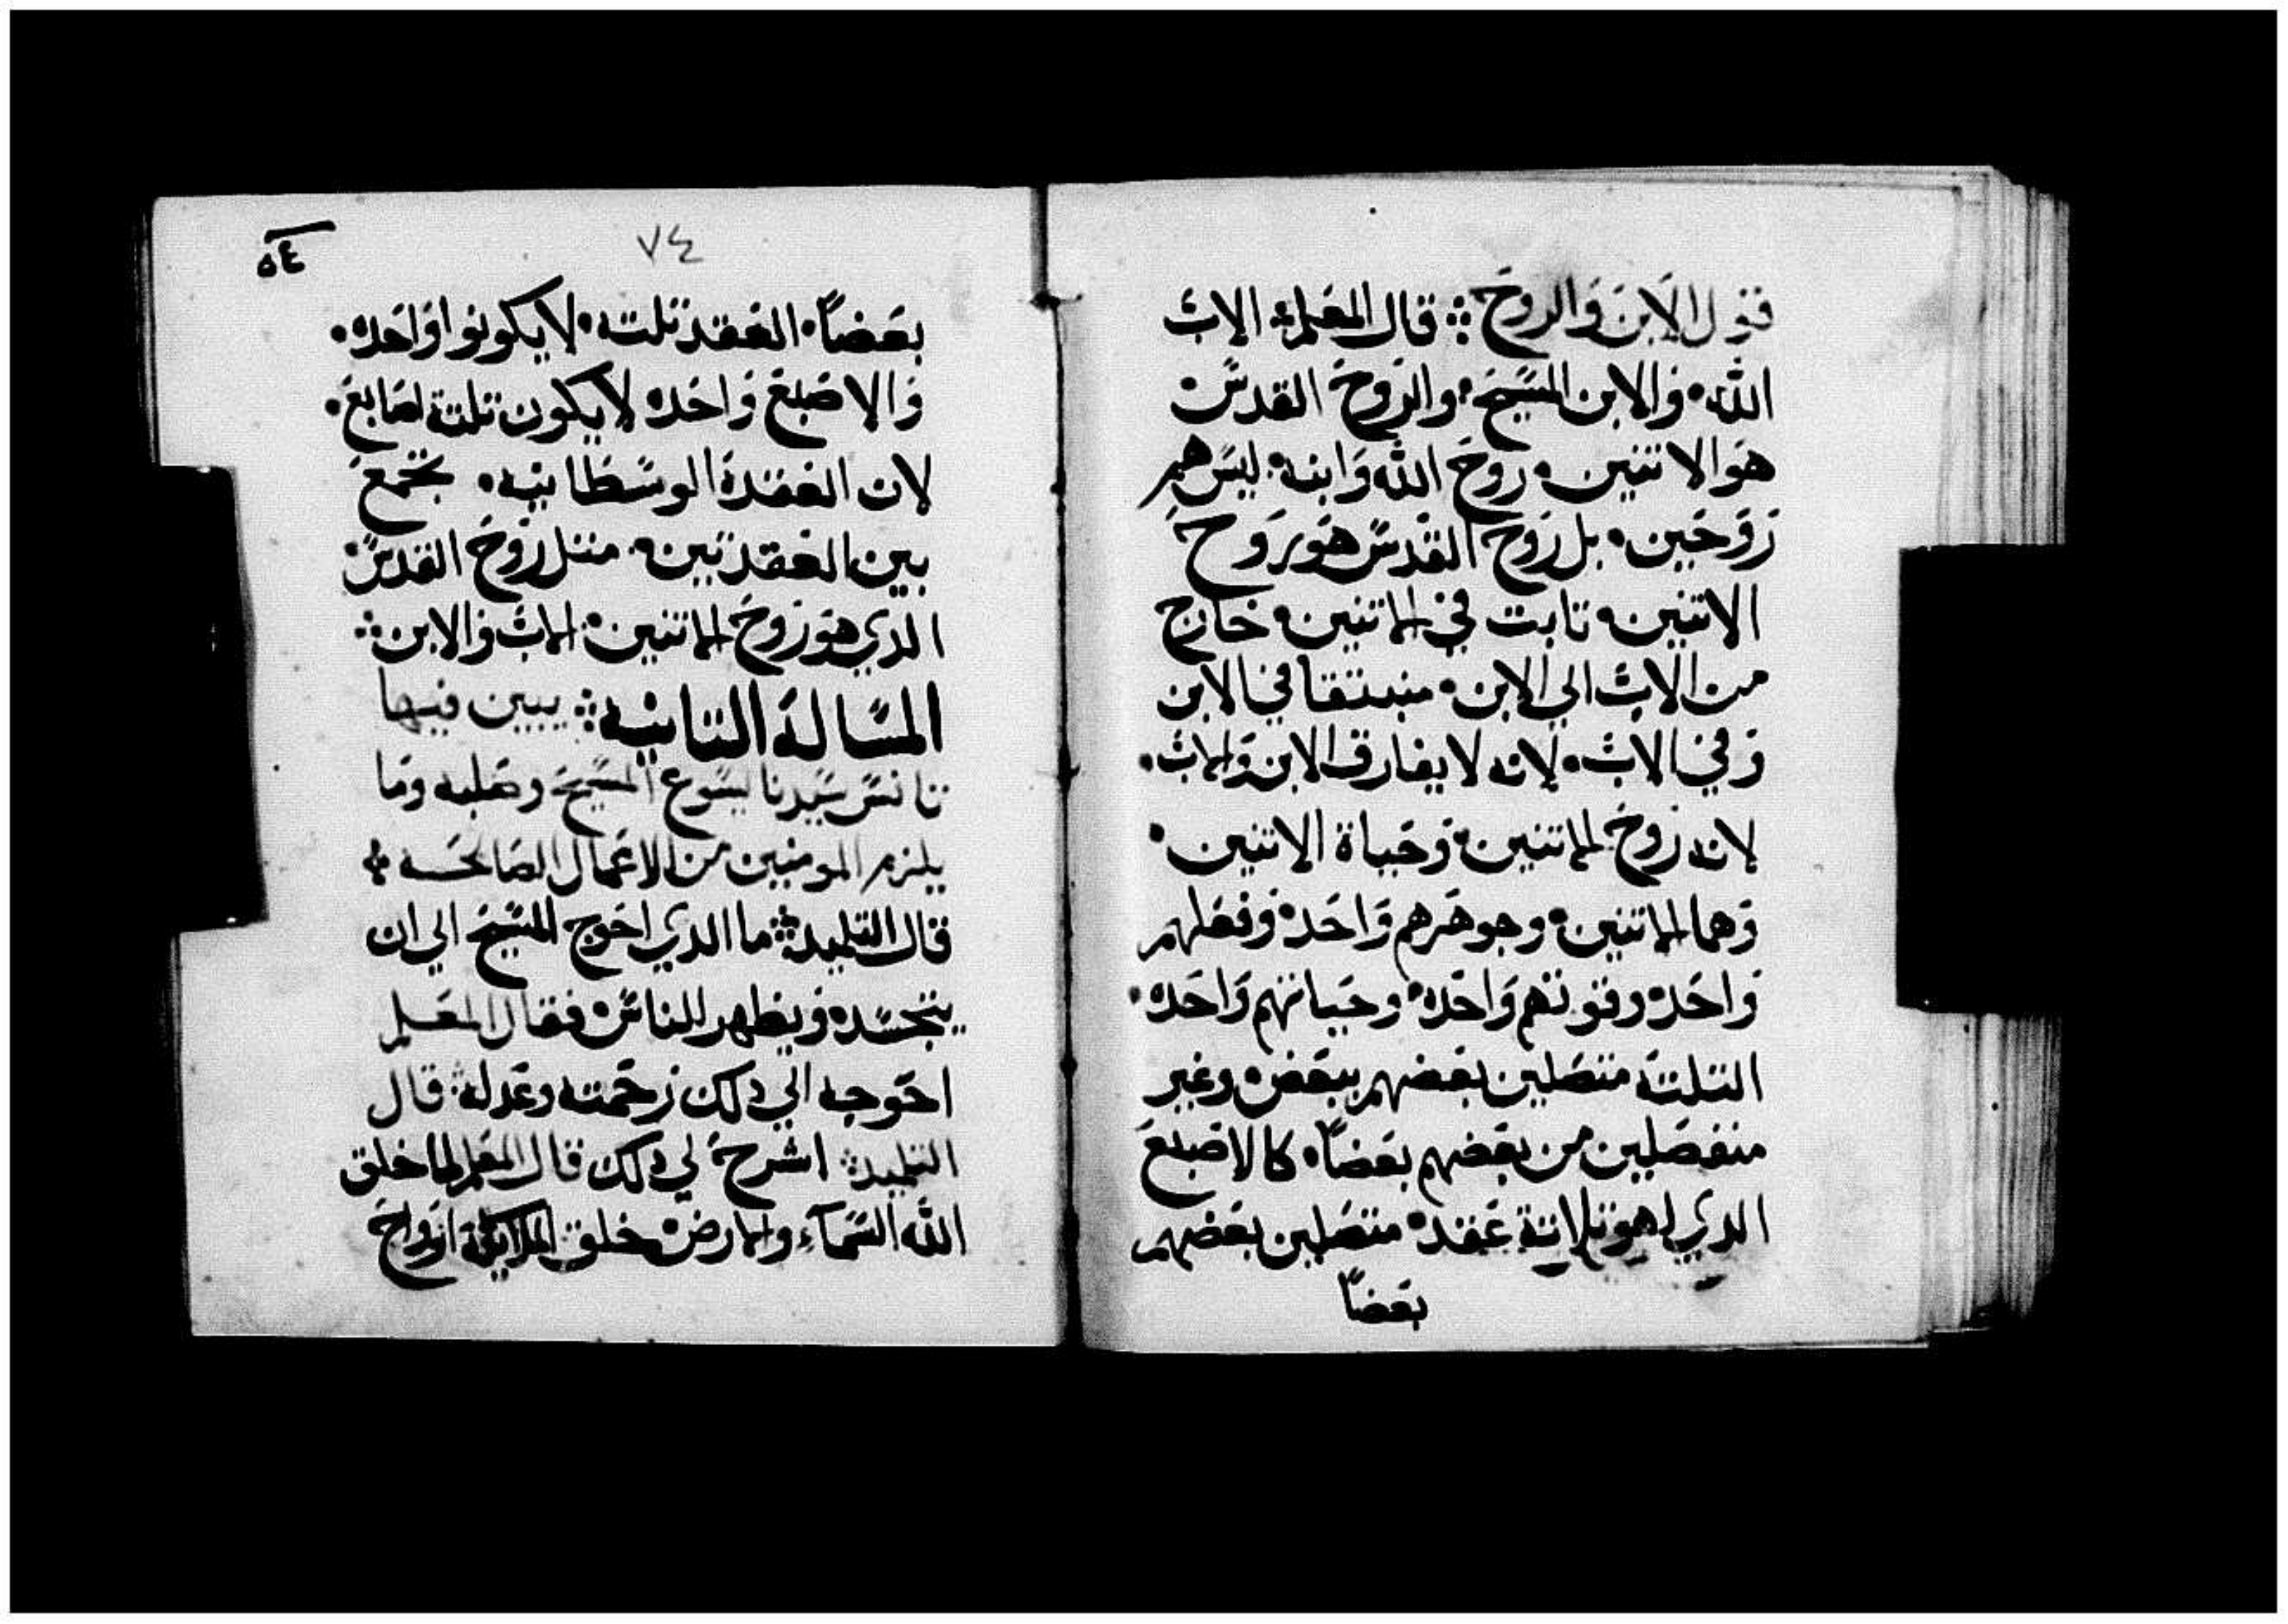 فتول الابن والروح ܀ قال المعلم܀ الاب
الله• والابن المسيح• والروح القدس•
هو الاتنين• روح الله وابنه• ليس هم
روحين• بل روح القدس هو روح
الاتنين• تابت في الاتنين• خارج
من الاب الي الابن• منبتقا في الابن
وفي الاب• لانه لا يفارق الابن والاب•
لانه روح الاتنين• وحياة الاتنين•
وهما الاتنين• وجوهرهم واحد• وفعلهم
واحد• وقوتهم واحده• وحياتهم واحده•
التلتة متصلين بعضهم ببعض• وغير
منفصلين من بعضهم بعضا• كالاصبع
الدي هو تلاتة عقد• متصلين بعضهم
بعضاً
٧٤
٥٤
بعضاً• العقد تلته• لا يكونوا واحده•
والاصبع واحده لا يكون تلتة اصابع•
لان العقدة الوسطانيه• تجمع
بين العقدتين• متل روح القدس•
الدي هو روح الاتنين• الاب والابن܀
المسالة التانيه܀ يبين فيها
تانس سيدنا يسوع المسيح وصلبه وما
يلزم المومنين من الاعمال الصالحه܀
قال التلميد܀ ما الدي احوج المسيح الي ان
يتجسد• ويظهر للناس• فقال المعلم
احوجه الي دلك رحمته وعدله܀ قال
التلميد܀ اشرح لي دلك قال المعلم لما خلق
الله السماء والارض• خلق الملايكة ارواح